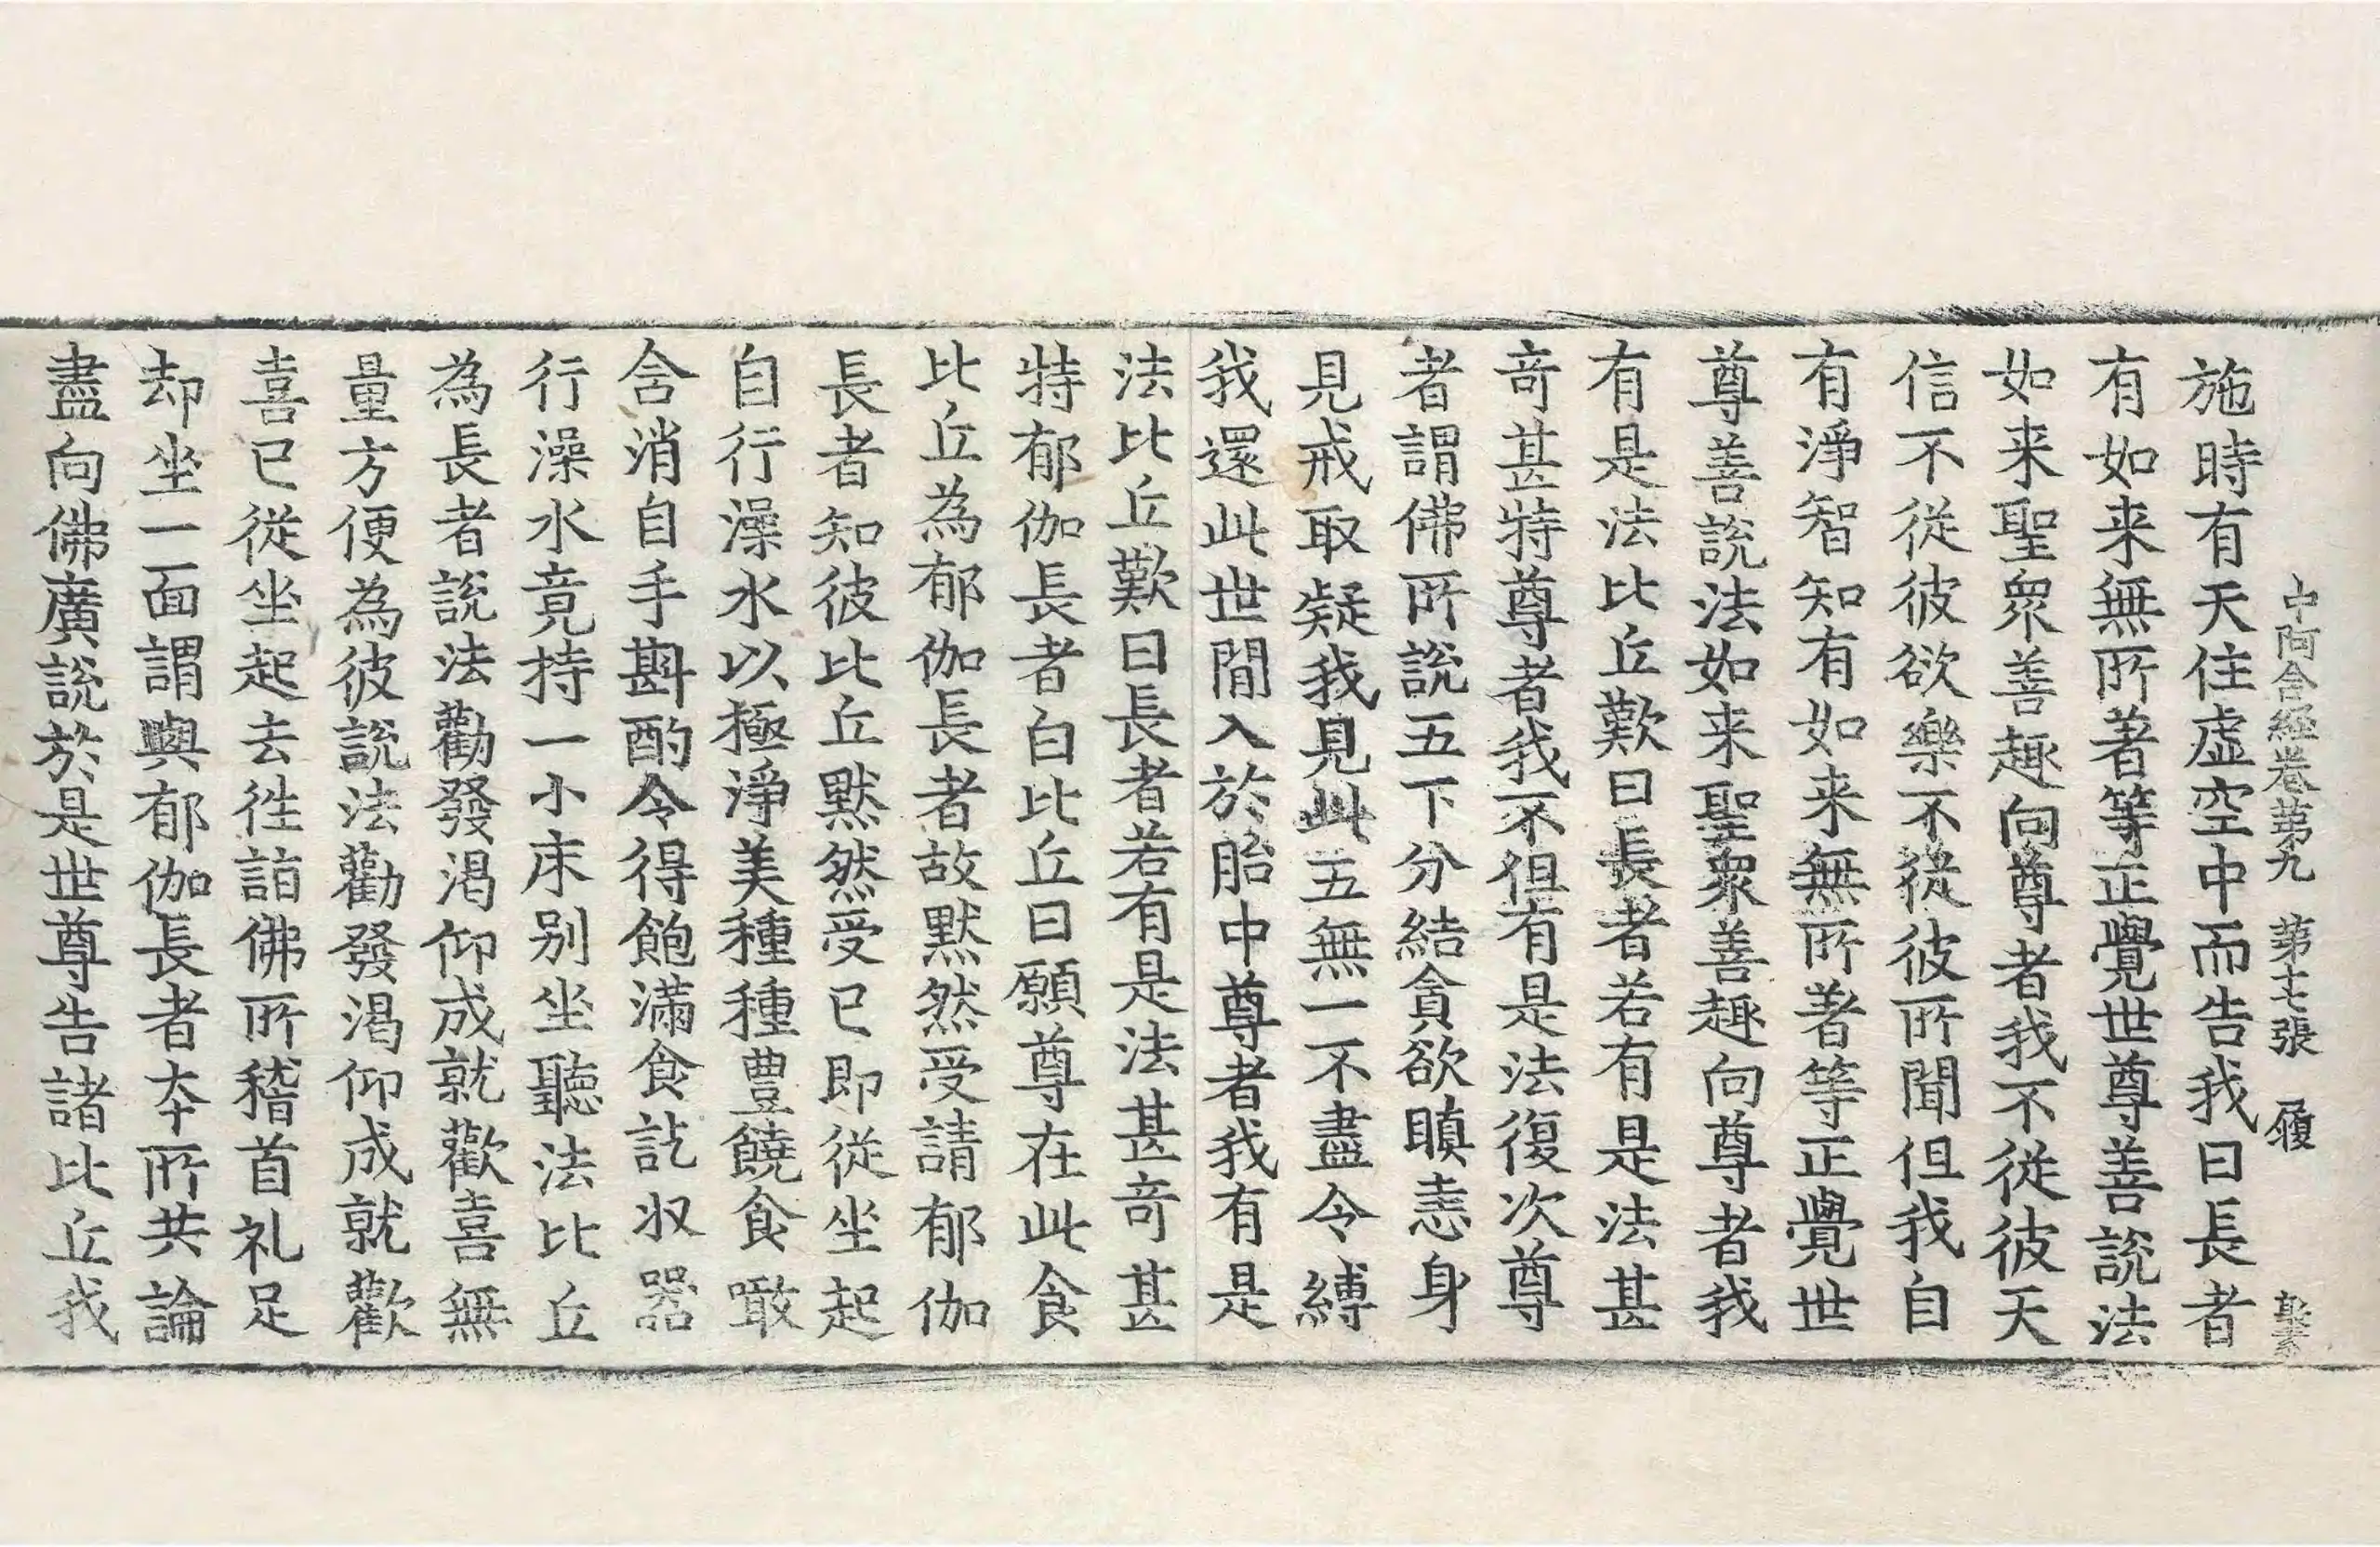 中阿含經卷第九　第十七張　履
施時有天住虛空中而告我曰長者
有如来無所著等正覺世尊善說法
如来聖衆善趣向尊者我不從彼天
信不從彼欲樂不從彼所聞但我自
有淨智知有如来無所著等正覺世
尊善說法如来聖衆善趣向尊者我
有是法比丘歎曰長者若有是法甚
竒甚特尊者我不但有是法復次尊
者謂佛所說五下分結貪欲瞋恚身
見戒取疑我見此五無一不盡令縛
我還此世間入於胎中尊者我有是
法比丘歎曰長者若有是法甚竒甚
特郁伽長者白比丘曰願尊在此食
比丘為郁伽長者故默然受請郁伽
長者知彼比丘默然受已即從坐起
自行澡水以極淨美種種豊饒食噉
含消自手斟酌令得飽滿食訖收器
行澡水竟持一小床別坐聽法比丘
為長者說法勸發渴仰成就歡喜無
量方便為彼說法勸發渴仰成就歡
喜已從坐起去往詣佛所稽首礼足
却坐一面謂與郁伽長者夲所共論
盡向佛廣說於是世尊告諸比丘我